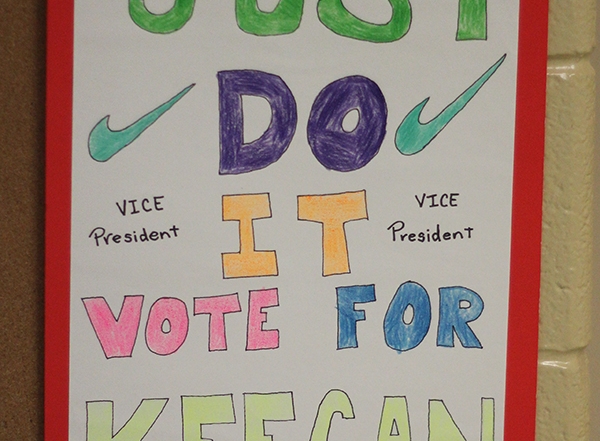 JUST
DO
IT
VICE President
VICE President
VOTE FOR
KEEGAN